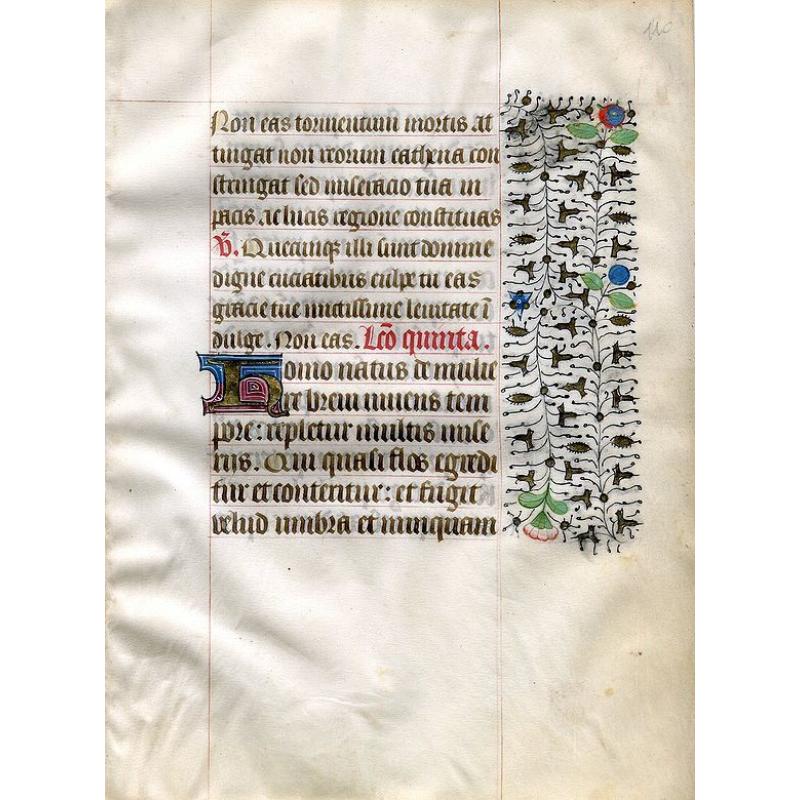 110
Non eas tormentum mortis at
tingat non reorum cathena con
stringat sed miseracio tua in
pacis ac lucis regione constituas
V̄. Quecunqꝫ illi sunt domine
digne cruciatibus culpe tu eas
gracie tue mitissime lenitate ī
dulge. Non eas. Lc̄o quinta.
Homo natus de mulie
re brevi vivens tem
pore: repletur multis mise
rijs. Qui quasi flos egredi
tur et conteritur: et fugit
velud umbra et nunquam